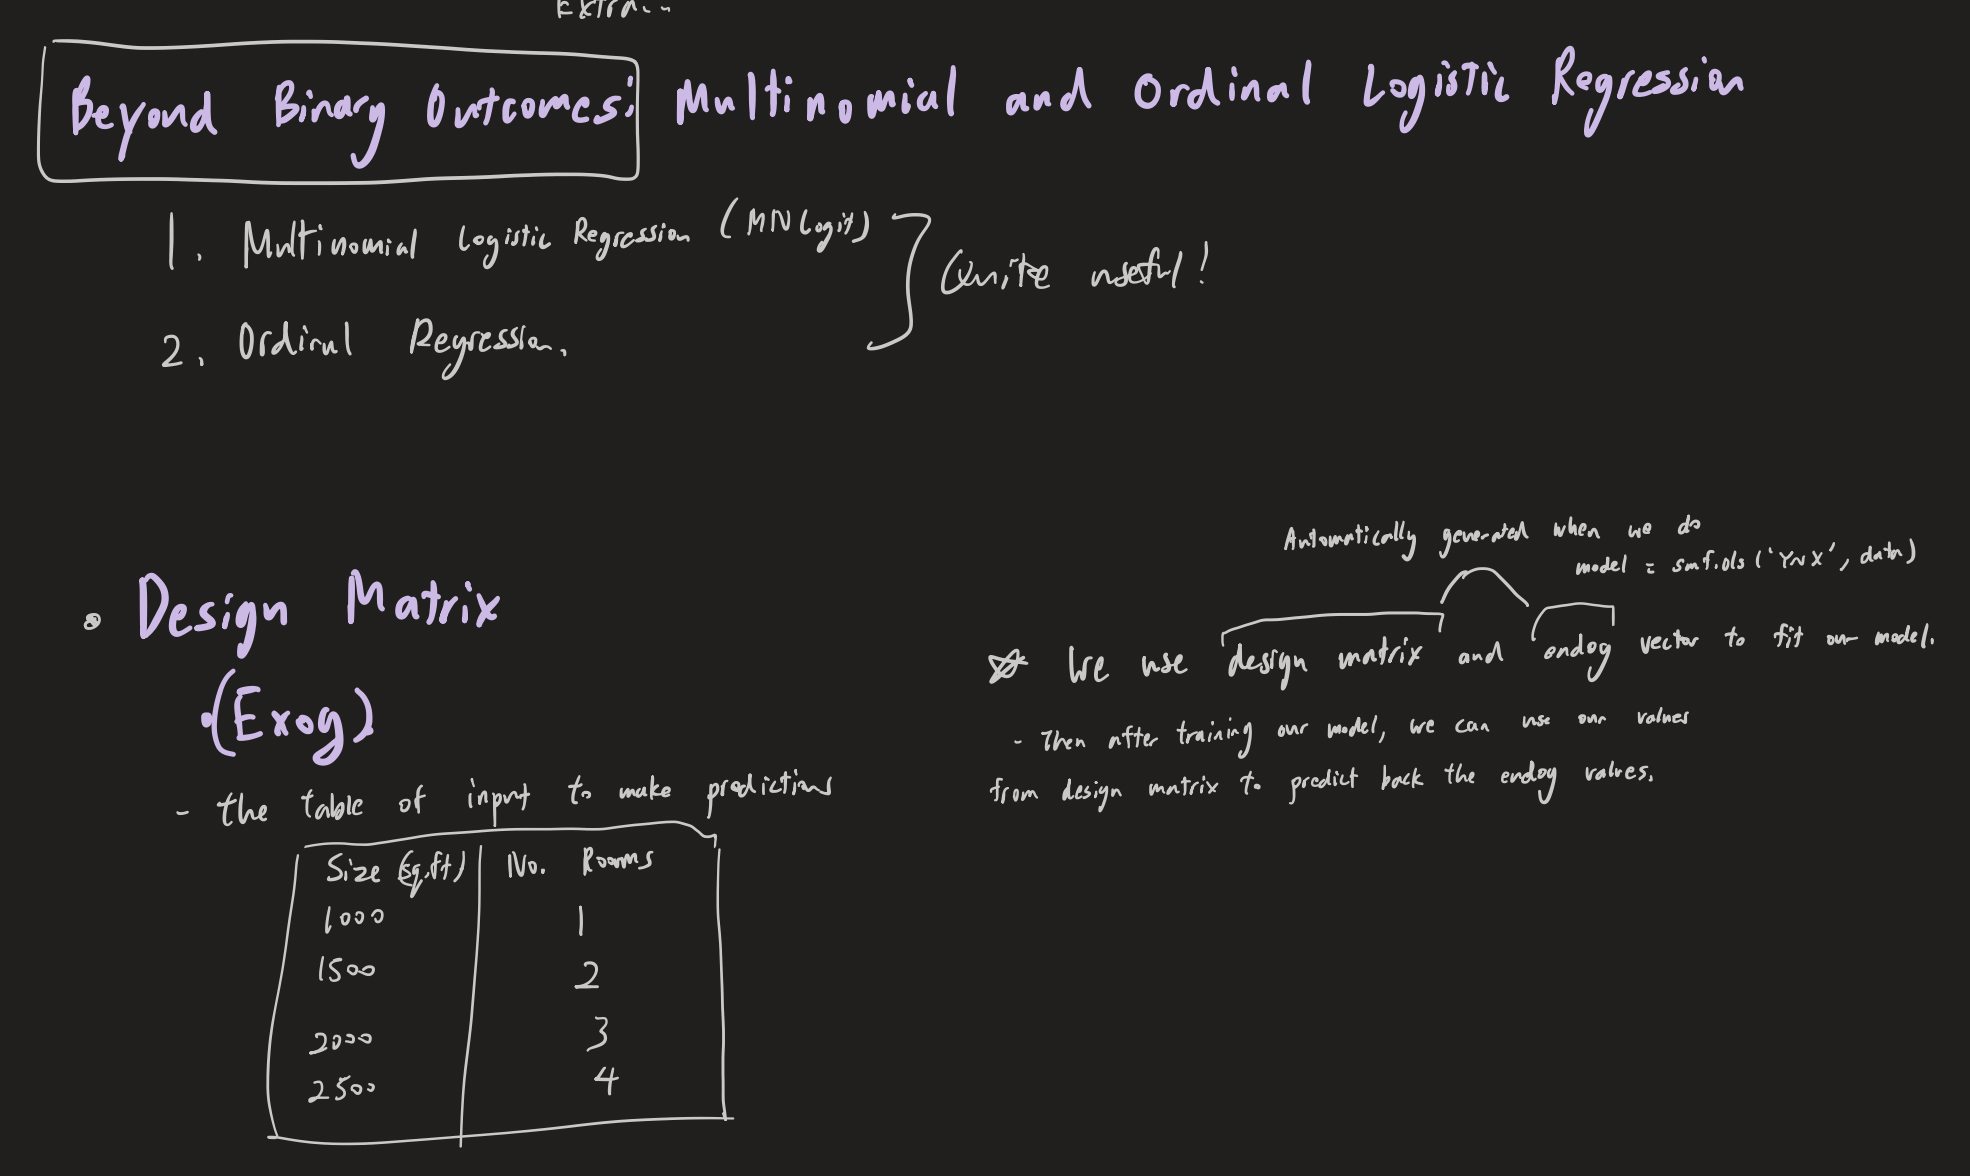 Extra..
Beyond Binary Outcomes: Multinomial and Ordinal Logistic Regression
1. Multinomial Logistic Regression (MNLogit)
2. Ordinal Regression.
Quite useful!
• Design Matrix
•(Exog)
- the table of input to make predictions
Size (sq.ft) No. Rooms
1000 1
1500 2
2000 3
2500 4
Automatically generated when we do
model = smf.ols('Y~X', data)
☆ We use design matrix and endog vector to fit our model.
- Then after training our model, we can use our values
from design matrix to predict back the endog values.